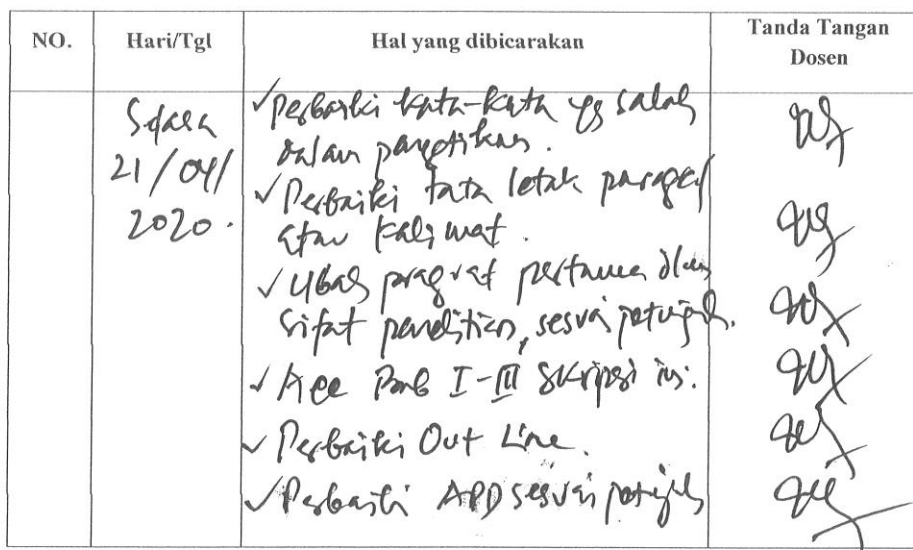 NO. Hari/Tgl Hal yang dibicarakan Tanda Tangan Dosen
Selasa
21/04/
2020.
✓Perbaiki kata-kata yg salah
dalam pengetikan.
✓Perbaiki tata letak paragraf
atau kalimat.
✓Ubah pragraf pertama dlm
sifat penelitian, sesuai petunjuk.
✓Acc Bab I-III Skripsi ini.
✓Perbaiki Out Line.
✓Perbaiki APD sesuai petunjuk